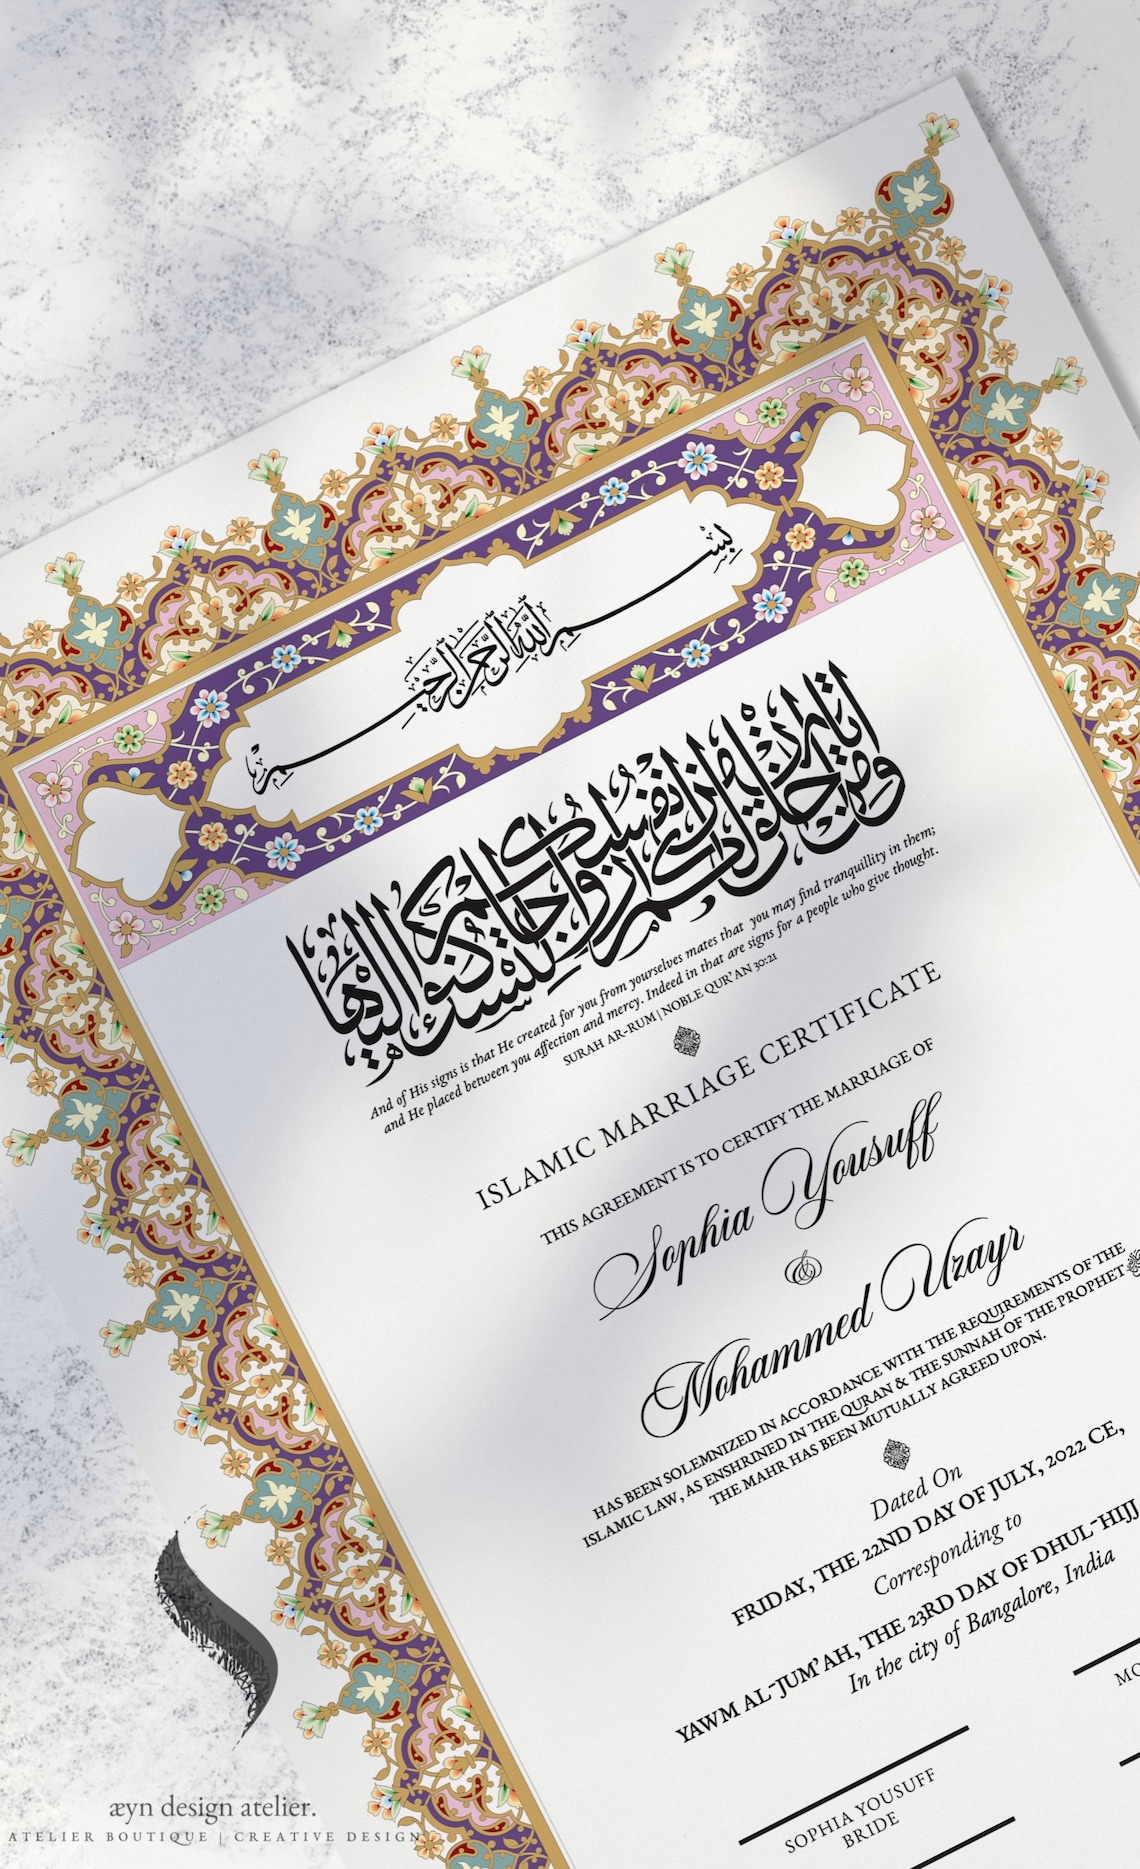 بِسْمِ اللَّهِ الرَّحْمَٰنِ الرَّحِيمِ
ومن اياته ان خلق لكم من انفسكم ازواجا لتسكنوا اليها
And of His signs is that He created for you from yourselves mates that you may find tranquillity in them;
and He placed between you affection and mercy. Indeed in that are signs for a people who give thought.
SURAH AR-RUM | NOBLE QUR'AN 30:21
ISLAMIC MARRIAGE CERTIFICATE
THIS AGREEMENT IS TO CERTIFY THE MARRIAGE OF
Sophia Yousuff
&
Mohammed Uzayr
HAS BEEN SOLEMNIZED IN ACCORDANCE WITH THE REQUIREMENTS OF THE
ISLAMIC LAW, AS ENSHRINED IN THE QURAN & THE SUNNAH OF THE PROPHET
THE MAHR HAS BEEN MUTUALLY AGREED UPON.
Dated On
FRIDAY, THE 22ND DAY OF JULY, 2022 CE,
Corresponding to
YAWM AL-JUM'AH, THE 23RD DAY OF DHUL-HIJJ
In the city of Bangalore, India
MO
SOPHIA YOUSUFF
BRIDE
æyn design atelier.
ATELIER BOUTIQUE | CREATIVE DESIGN